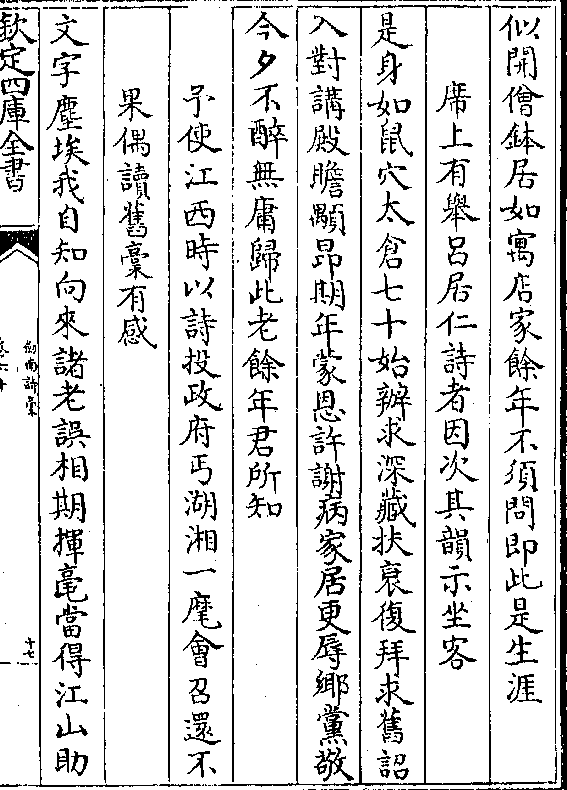 似開僧鉢居如寓店家餘年不須問即此是生涯
席上有舉呂居仁詩者因次其韻示坐客
是身如鼠穴太倉七十始辦求深藏扶衰復拜求舊詔
入對講殿瞻顒昂期年蒙恩許謝病家居更辱鄉黨敬
今夕不醉無庸歸此老餘年君所知
予使江西時以詩投政府丐湖湘一麾會召還不
果偶讀舊稾有感
文字塵埃我自知向來諸老誤相期揮毫當得江山助
欽定四庫全書
劍南詩稾
十七